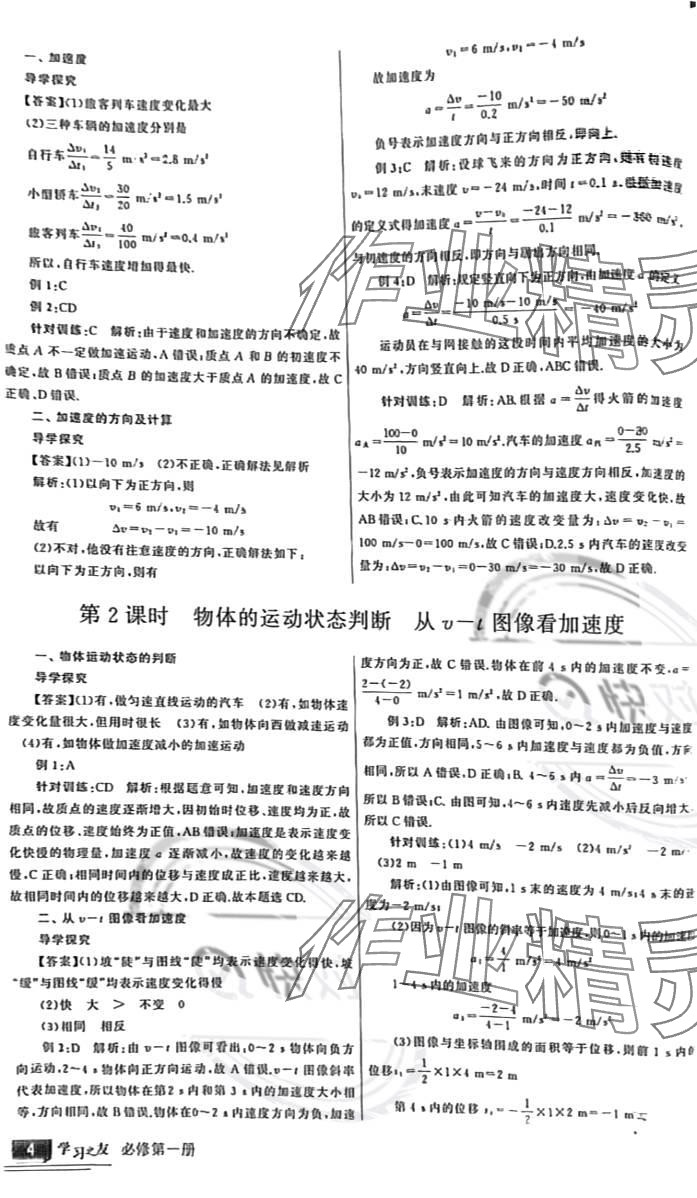 一、加速度
导学探究
【答案】(1)旅客列车速度变化最大
(2)三种车辆的加速度分别是
自行车Δv₁/Δt₁=14/5 m/s²=2.8 m/s²
小型轿车Δv₂/Δt₂=30/20 m/s²=1.5 m/s²
旅客列车Δv₃/Δt₃=40/100 m/s²=0.4 m/s²
所以,自行车速度增加得最快.
例1:C
例2:CD
针对训练:C 解析:由于速度和加速度的方向不确定,故
质点 A 不一定做加速运动,A 错误;质点 A 和 B 的初速度不
确定,故 B 错误;质点 B 的加速度大于质点 A 的加速度,故 C
正确、D 错误.
二、加速度的方向及计算
导学探究
【答案】(1)-10 m/s (2)不正确,正确解法见解析
解析:(1)以向下为正方向,则
v₁=6 m/s,v₂=-4 m/s
故有 Δv=v₂-v₁=-10 m/s
(2)不对,他没有注意速度的方向,正确解法如下:
以向下为正方向,则有
v₁=6 m/s,v₂=-4 m/s
故加速度为
a=Δv/t=-10/0.2 m/s²=-50 m/s²
负号表示加速度方向与正方向相反,即向上.
例3:C 解析:设球飞来的方向为正方向,则有初速度
v₀=12 m/s,末速度 v=-24 m/s,时间 t=0.1 s,根据加速度
的定义式得加速度 a=v-v₀/t=-24-12/0.1 m/s²=-360 m/s²,
与初速度的方向相反,即方向与踢出方向相同.
例4:D 解析:规定竖直向下为正方向,由加速度 a 的定义
a=Δv/Δt=-10 m/s-10 m/s/0.5 s=-40 m/s²
运动员在与网接触的这段时间内平均加速度的大小为
40 m/s²,方向竖直向上.故 D 正确,ABC 错误.
针对训练:D 解析:AB.根据 a=Δv/Δt得火箭的加速度
=100-0/10 m/s²=10 m/s².汽车的加速度 =0-30/2.5 m/s²=
-12 m/s²,负号表示加速度的方向与速度方向相反,加速度的
大小为 12 m/s²,由此可知汽车的加速度大,速度变化快,故
AB 错误;C.10 s 内火箭的速度改变量为:Δv=v₂-v₁=
100 m/s-0=100 m/s,故 C 错误;D.2.5 s 内汽车的速度改变
量为:Δv=v₂-v₁=0-30 m/s=-30 m/s,故 D 正确.
第2课时 物体的运动状态判断 从 v-t 图像看加速度
一、物体运动状态的判断
导学探究
【答案】(1)有,做匀速直线运动的汽车 (2)有,如物体速
度变化量很大,但用时很长 (3)有,如物体向西做减速运动
(4)有,如物体做加速度减小的加速运动
例1:A
针对训练:CD 解析:根据题意可知,加速度和速度方向
相同,故质点的速度逐渐增大,因初始时位移、速度均为正,故
质点的位移、速度始终为正值,AB 错误;加速度是表示速度变
化快慢的物理量,加速度 a 逐渐减小,故速度的变化越来越
慢,C 正确;相同时间内的位移与速度成正比,速度越来越大,
故相同时间内的位移越来越大,D 正确.故本题选 CD.
二、从 v-t 图像看加速度
导学探究
【答案】(1)坡“陡”与图线“陡”均表示速度变化得快,坡
“缓”与图线“缓”均表示速度变化得慢
(2)快 大 > 不变 0
(3)相同 相反
例2:D 解析:由 v-t 图像可看出,0~2 s 物体向负方
向运动,2~4 s 物体向正方向运动,故 A 错误.v-t 图像斜率
代表加速度,所以物体在第2 s 内和第 3 s 内的加速度大小相
等,方向相同,故 B 错误.物体在0~2 s 内速度方向为负,加速
度方向为正,故 C 错误.物体在前 4 s 内的加速度不变,a=
2-(-2)/4-0 m/s²=1 m/s²,故 D 正确.
例3:D 解析:AD.由图像可知,0~2 s 内加速度与速度
都为正值,方向相同,5~6 s 内加速度与速度都为负值,方向
相同,所以 A 错误,D 正确;B.4~6 s 内 a=Δv/Δt=-3 m/s²
所以 B 错误;C.由图可知,4~6 s 内速度先减小后反向增大,
所以 C 错误.
针对训练:(1)4 m/s -2 m/s (2)4 m/s² -2 m/s²
(3)2 m -1 m
解析:(1)由图像可知,1 s 末的速度为 4 m/s;4 s 末的速
度为-2 m/s;
(2)因为 v-t 图像的斜率等于加速度,则 0~1 s 内的加速度
a₁=4/1 m/s²=4 m/s²
1~4 s 内的加速度
=-2-4/4-1 m/s²=-2 m/s²
(3)图像与坐标轴围成的面积等于位移,则前 1 s 内的
位移s₁=1/2×1×4 m=2 m
第 4 s 内的位移 =-1/2×1×2 m=-1 m
4 学习之友 必修第一册
作业精灵
作业精灵